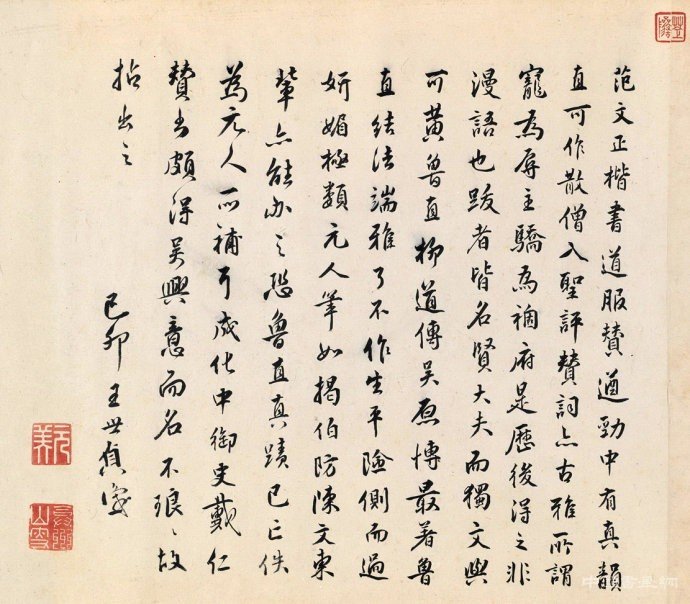 范文正楷書道服贊遒勁中有真韻
直可作散僧入聖評贊詞亦古雅所謂
寵為辱主驕為禍府是歷後得之非
漫語也跋者皆名賢大夫而獨文與
可黃魯直柳道傳吳原博最著魯
直結法端雅了不作生平險側而過
妍媚極類元人筆如揭伯防陳文東
輩亦能辦之恐魯直真蹟已亡佚
為元人所補耳成化中御史戴仁
贊書頗得吳興意而名不琅琅故
拈出之
己卯王世貞識
元美